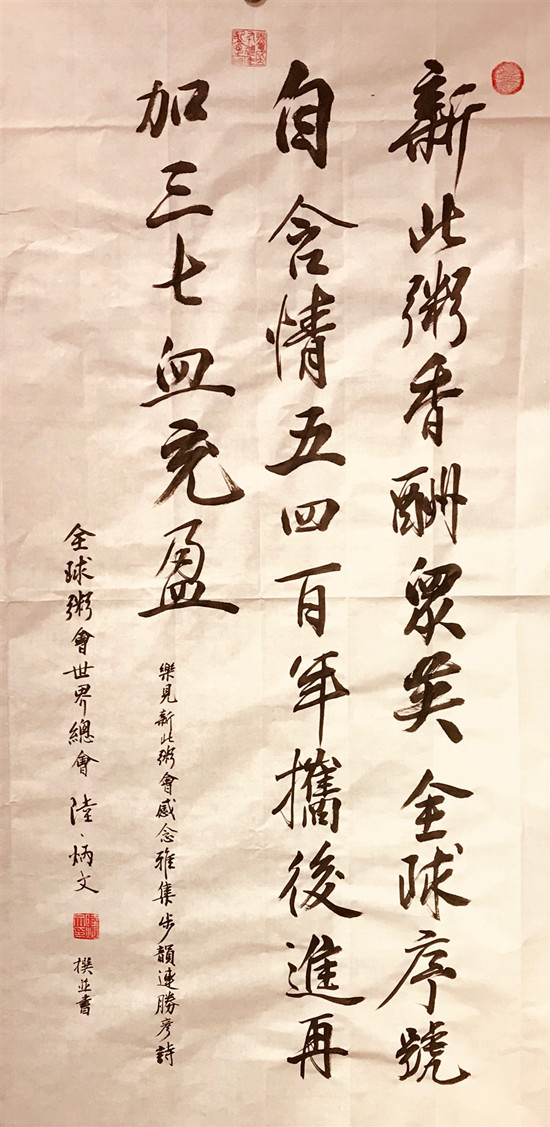 新北粥香酬眾英全球序號
自含情五四百年攜後進再
加三七血充盈
樂見新北粥會感念雅集步韻連勝彥詩
全球粥會世界總會 陸、炳文 撰並書